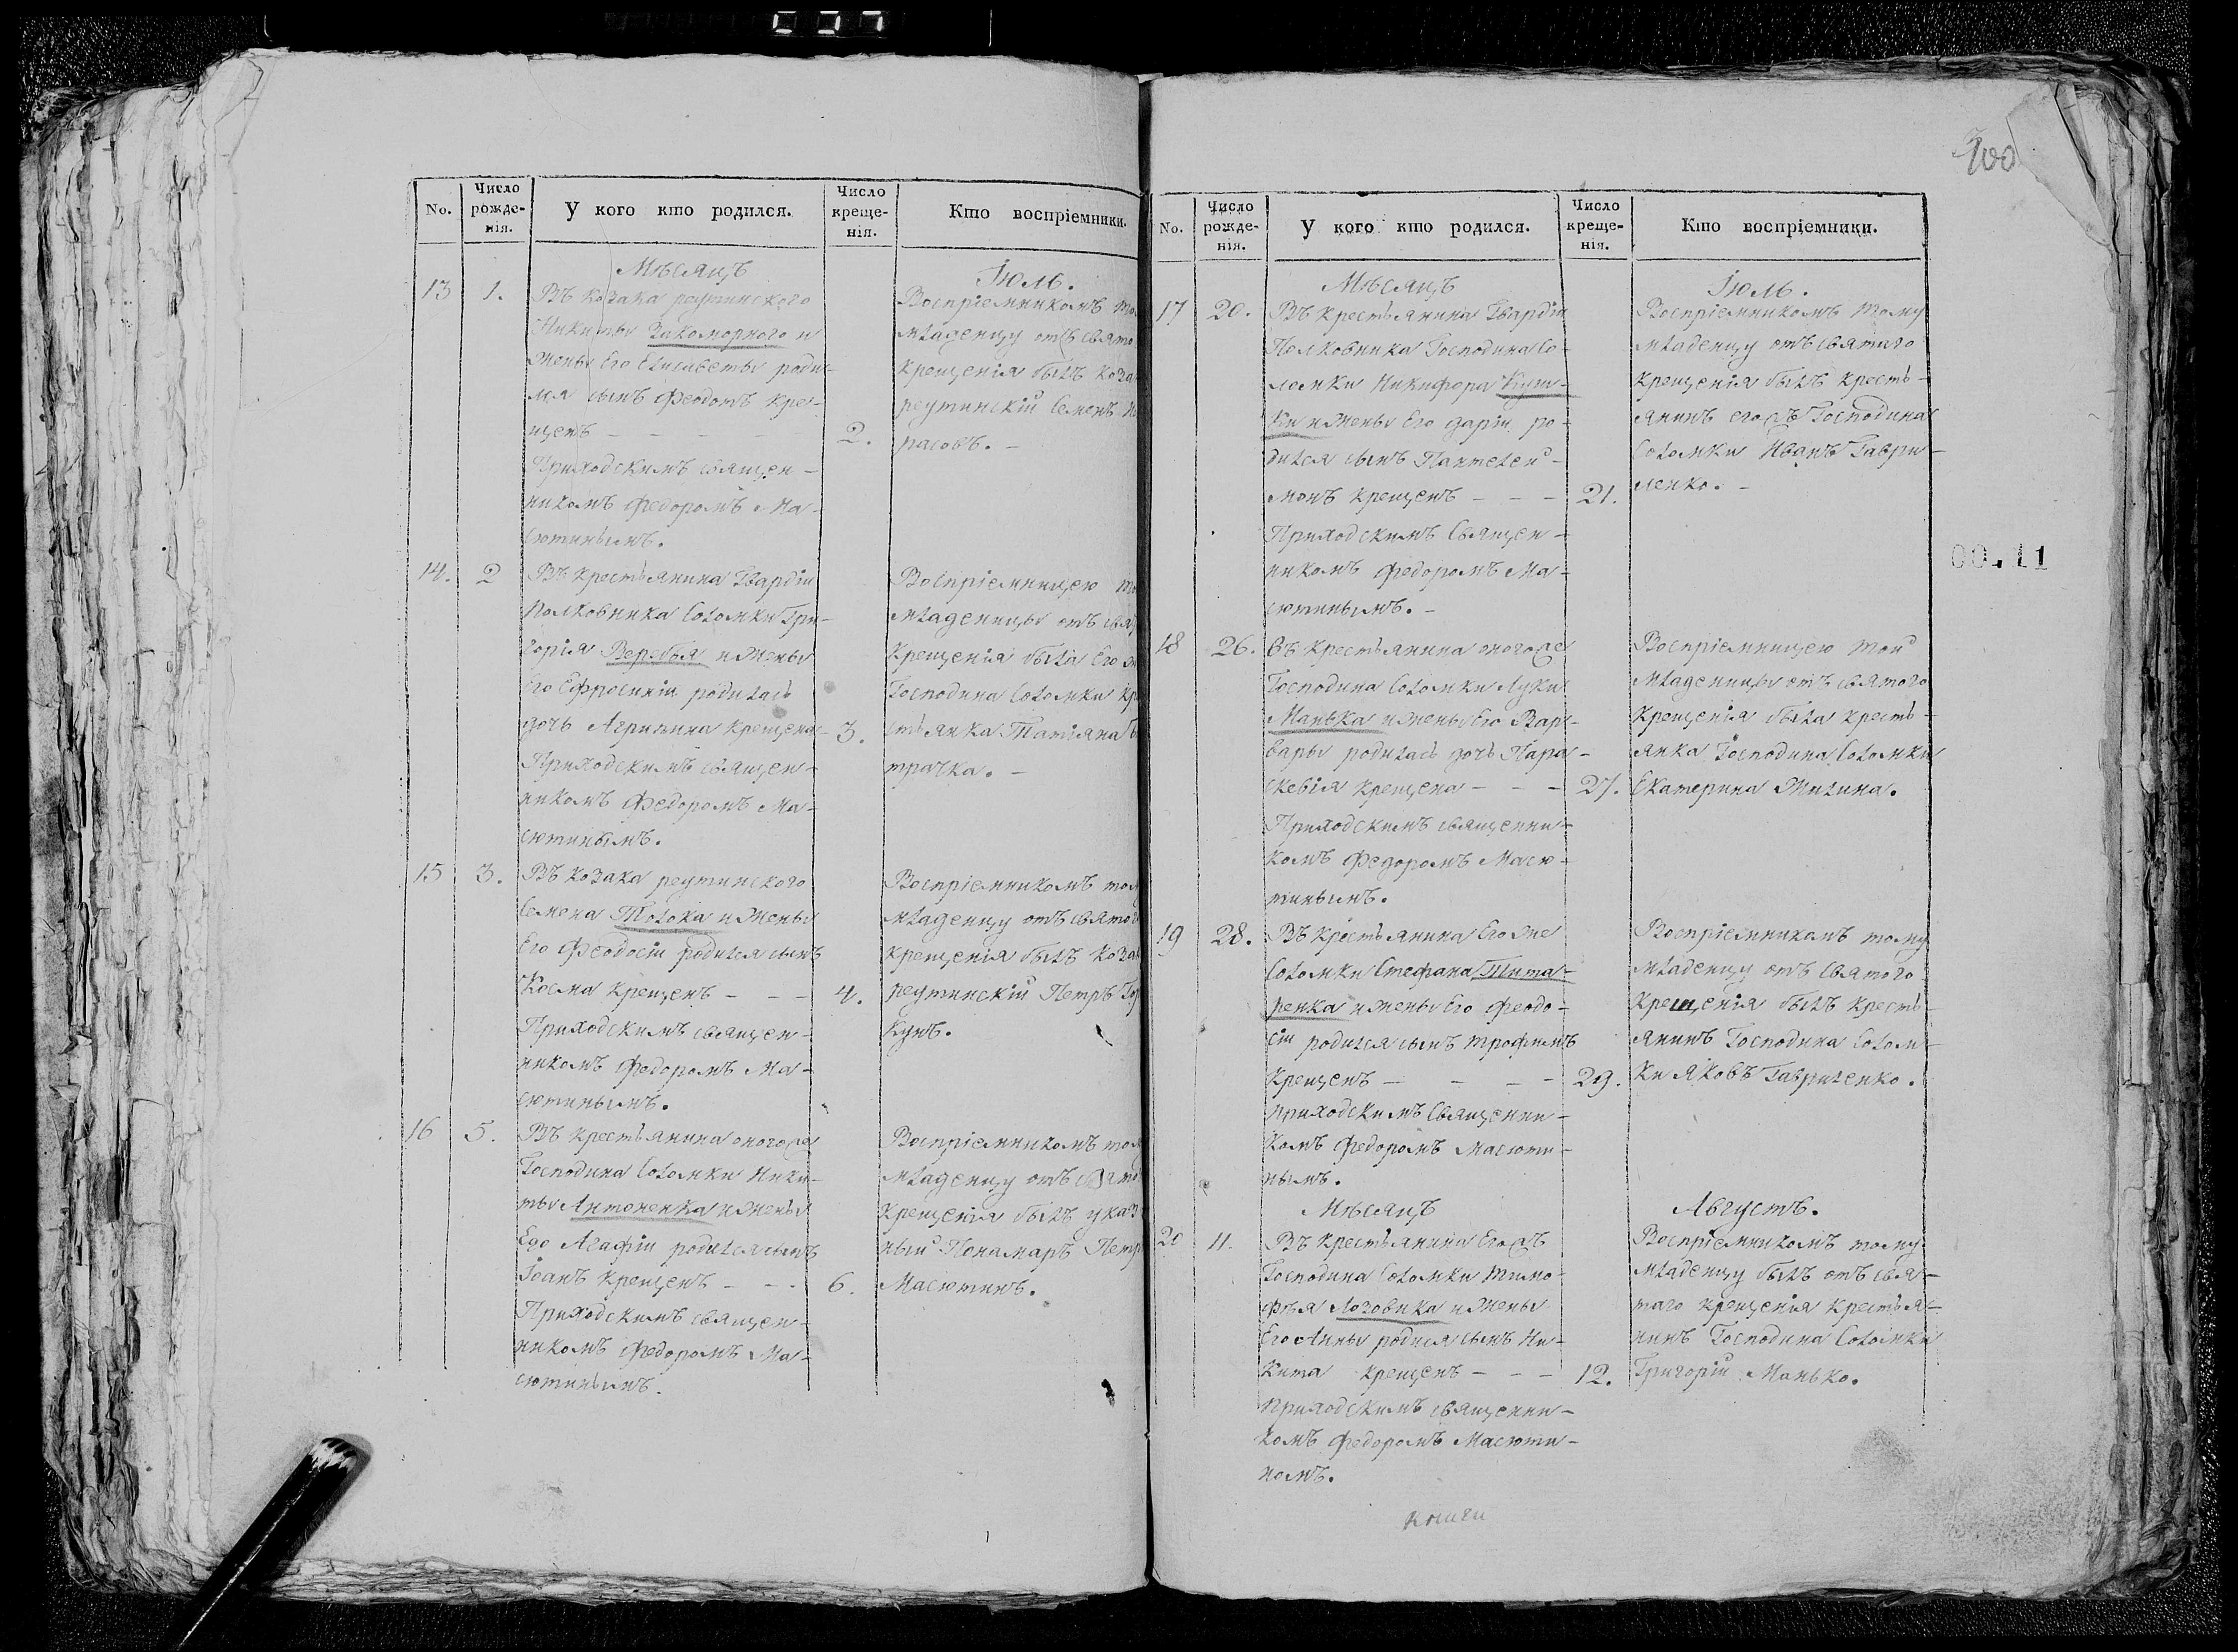 No.
Число рожде-нія.
У кого кто родился.
Число креще-нія.
Кто воспріемники.
Мѣсяцъ
Іюль.
13
1.
Въ козака реутинского
Никиты Закоморного и
жены Его Елисаветы роди-
лся сынъ Феодотъ кре-
щенъ – – – –
2.
Приходскимъ священ-
никомъ Федоромъ Ма-
сютинымъ.
Воспріемникомъ
младенцу отъ свято
крещенія былъ коза
реутинскій Семенъ
расовъ. –
14.
2
Въ крестьянина Гвардіи
Полковника Соломки Гри-
горія Веребья и жены
Его Ефросиніи родилась
дочь Агрипина крещена –
3.
Приходскимъ священ-
никомъ Федоромъ Ма-
сютинымъ.
Воспріемницею
младеницы отъ свя
крещенія была Его
Господина Соломки кре
стьянка Татіяна
трачка. –
15
3.
Въ козака реутинского
Семена Толока и жены
Его Феодосіи родился сынъ
Косма крещенъ – – –
4.
Приходскимъ священ-
никомъ Федоромъ Ма-
сютинымъ.
Воспріемникомъ том
младенцу отъ святог
крещенія былъ коза
реутинскій Петръ Гор
кунъ.
16
5.
Въ крестьянина оного же
Господина Соломки Ники-
ты Антоненка и жены
Его Агафіи родился сынъ
Іоанъ крещенъ – – –
6.
Приходскимъ священ-
никомъ Федоромъ Ма-
сютинымъ.
Воспріемникомъ том
младенцу отъ свято
крещенія былъ указ
ный Пономаръ Петр
Масютинъ.
300
No.
Число рожде-нія.
У кого кто родился.
Число креще-нія.
Кто воспріемники.
Мѣсяцъ
Іюль.
17
20.
Въ крестьянина Гвардіи
Полковника Господина Со-
ломки Никифора
и жены Его Даріи ро-
дился сынъ Пантелей-
монъ крещенъ – – –
21.
Приходскимъ священ-
никомъ Федоромъ Ма-
сютинымъ. –
Воспріемникомъ тому
младенцу отъ святаго
крещенія былъ кресть-
янинъ Господина
Соломки Иванъ Гаври-
ленко. –
18
26.
Въ крестьянина оного же
Господина Соломки Луки
Манька и жены Его Вар-
вары родилась дочь Пара-
скевія крещена – – –
27.
Приходскимъ священни-
комъ Федоромъ Масю-
тинымъ.
Воспріемницею той
младеницы отъ святого
крещенія была кресть-
янка Господина Соломки
Екатерина Жилина.
19
28.
Въ крестьянина Его же
Соломки Стефана Тита-
ренка и жены Его Феодо-
сіи родился сынъ Трофимъ
крещенъ – – – –
29.
приходскимъ священни-
комъ Федоромъ Масюти-
нымъ.
Воспріемникомъ тому
младенцу отъ святого
крещенія былъ кресть-
янинъ Господина Солом-
ки Яковъ Гавриленко.
00.11
Мѣсяцъ
Августъ.
20
11.
Въ крестьянина
Господина Соломки Тимо-
фѣя Лозовика и жены
Его Анны родися сынъ Ни-
кита крещенъ – – –
12.
Приходскимъ священни-
комъ Федоромъ Масюти-
номъ.
Воспріемникомъ тому
младенцу былъ отъ свя-
таго крещенія крестья-
нинъ Господина Соломки
Григорій Манько.
книги